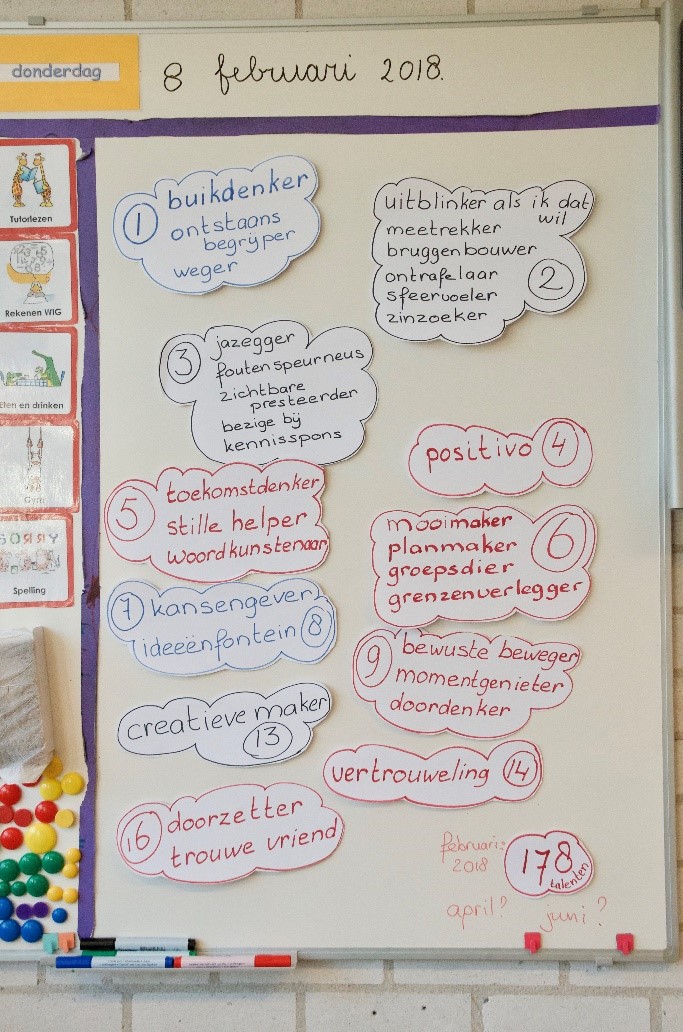 donderdag
8 februari 2018.
Tutorlezen
Rekenen WIG
Eten en drinken
Gym
Spelling
1
buikdenker
ontstaans
begrijper
weger
uitblinker als ik dat
wil
meetrekker
bruggenbouwer
ontrafelaar
sfeervoeler
zinzoeker
2
3
jazegger
foutenspeurneus
zichtbare
presteerder
bezige bij
kennisspons
positivo 4
5
toekomstdenker
stille helper
woordkunstenaar
mooimaker
planmaker
groepsdier
grenzenverlegger
6
7 kansengever
ideeënfontein 8
9
bewuste beweger
momentgenieter
doordenker
creatieve maker
13
vertrouweling 14
16
doorzetter
trouwe vriend
februari:
2018
178
talenten
april? juni?